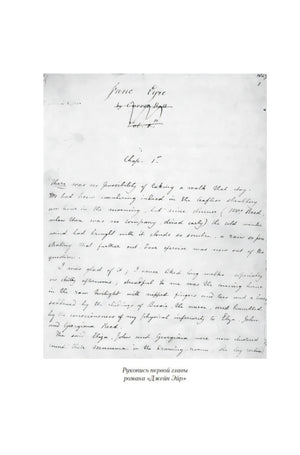 Jane Eyre
by Currer Bell
Vol. 1st
1
Chap. 1st
There was no possibility of taking a walk that day.
We had been wandering indeed in the leafless shrubbery
an hour in the morning, but since dinner (Mrs Reed,
when there was no company, dined early) the cold winter
wind had brought with it clouds so sombre, a rain so pene
trating that further out-door exercise was now out of the
question.
I was glad of it; I never liked long walks especially
on chilly afternoons; dreadful to me was the coming home
in the raw twilight with nipped fingers and toes and a heart
saddened by the chidings of Bessie, the nurse, and humbled
by the consciousness of my physical inferiority to Eliza, John
and Georgiana Reed.
The said Eliza, John and Georgiana were now clustered
round their mamma in the drawing-room; she lay reclin
Рукопись первой главы
романа «Джейн Эйр»